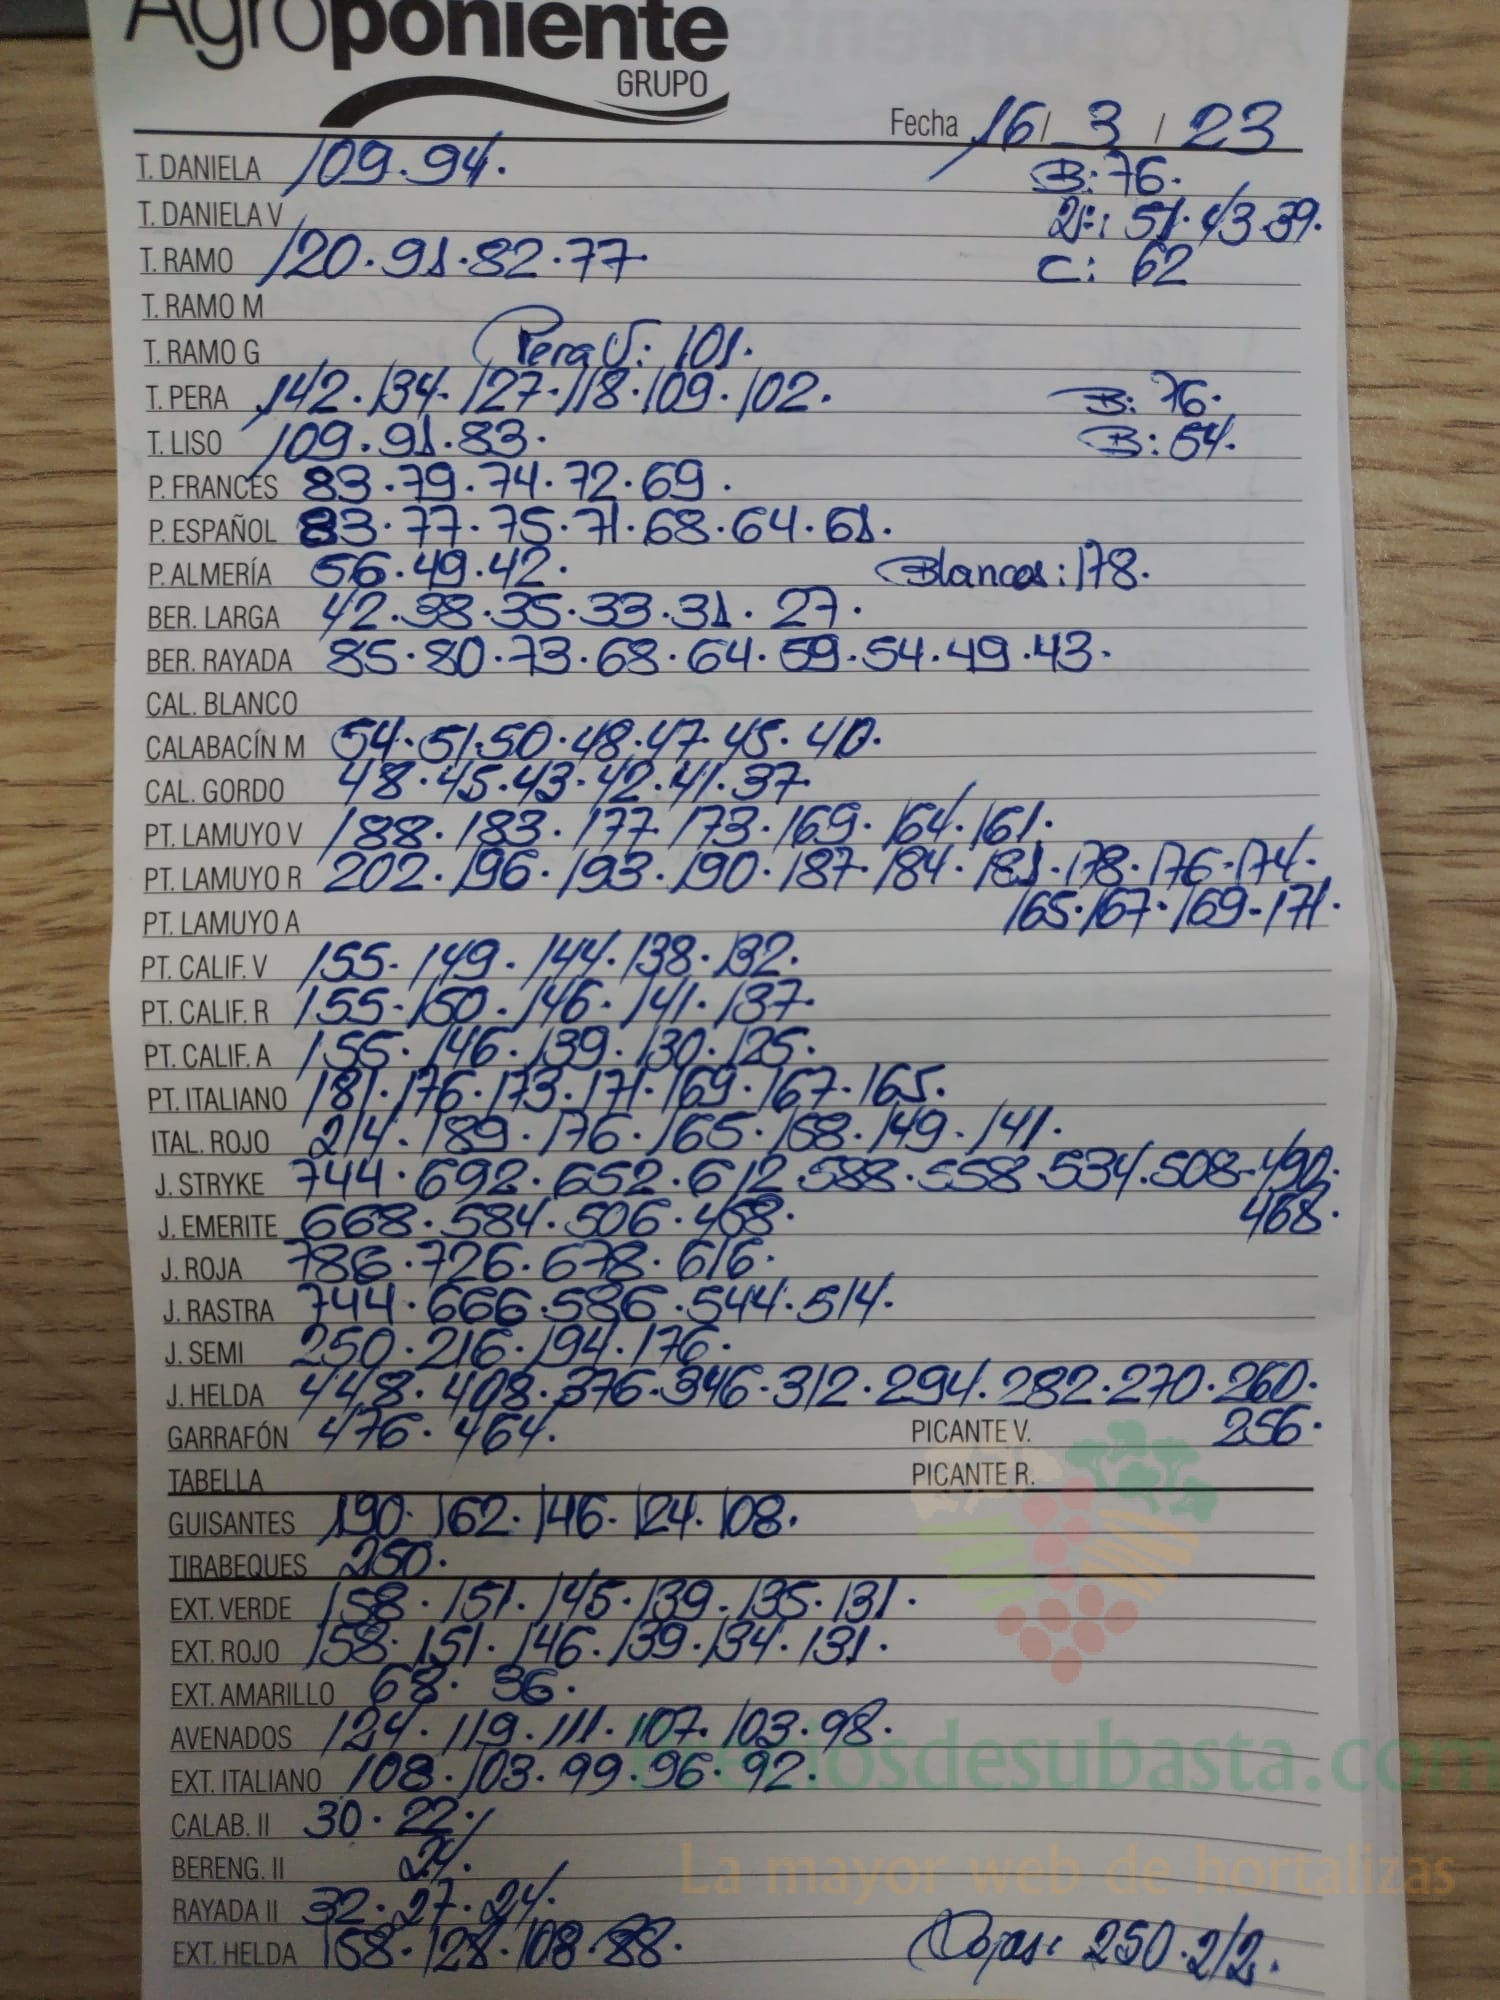 Agroponiente
GRUPO
Fecha 16 / 3 / 23
T. DANIELA 109.94. B: 76.
T. DANIELA V 2ª: 51.43.39.
T. RAMO 120.91.82.77. C: 62
T. RAMO M
T. RAMO G Pera V: 101.
T. PERA 142.134.127.118.109.102. B: 76.
T. LISO 109.91.83. B: 54.
P. FRANCÉS 83.79.74.72.69.
P. ESPAÑOL 83.77.75.71.68.64.61.
P. ALMERÍA 56.49.42. Blancos: 178.
BER. LARGA 42.38.35.33.31.27.
BER. RAYADA 85.80.73.68.64.59.54.49.43.
CAL. BLANCO
CALABACÍN M 54.51.50.48.47.45.40.
CAL. GORDO 48.45.43.42.41.37.
PT. LAMUYO V 188.183.177.173.169.164.161.
PT. LAMUYO R 202.196.193.190.187.184.181.178.176.174.
PT. LAMUYO A 165.167.169-171.
PT. CALIF. V 155.149.144.138.132.
PT. CALIF. R 155.150.146.141.137.
PT. CALIF. A 155.146.139.130.125.
PT. ITALIANO 181.176.173.171.169.167.165.
ITAL. ROJO 214.189.176.165.158.149.141.
J. STRYKE 744.692.652.612.588.558.534.508.490.
J. EMERITE 668.584.506.468. 468.
J. ROJA 786.726.678.616.
J. RASTRA 744.666.586.544.514.
J. SEMI 250.216.194.176.
J. HELDA 448.408.376.346.312.294.282.270.260.
GARRAFÓN 476.464. PICANTE V. 256.
TABELLA PICANTE R.
GUISANTES 190.162.146.124.108.
TIRABEQUES 250.
EXT. VERDE 158.151.145.139.135.131.
EXT. ROJO 158.151.146.139.134.131.
EXT. AMARILLO 68.36.
AVENADOS 124.119.111.107.103.98.
EXT. ITALIANO 108.103.99.96.92.
Preciosdesubasta.com
CALAB. II 30.22.
BERENG. II 21.
La mayor web de hortalizas
RAYADA II 32.27.24.
EXT. HELDA 158.128.108.88. Rojas: 250.212.